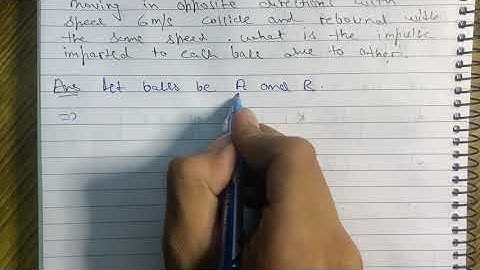 moving in opposite directions with
speed 6 m/s collide and rebound with
the same speed . what is the impulse
imparted to each ball due to other.
Ans Let balls be A and B.
⇒